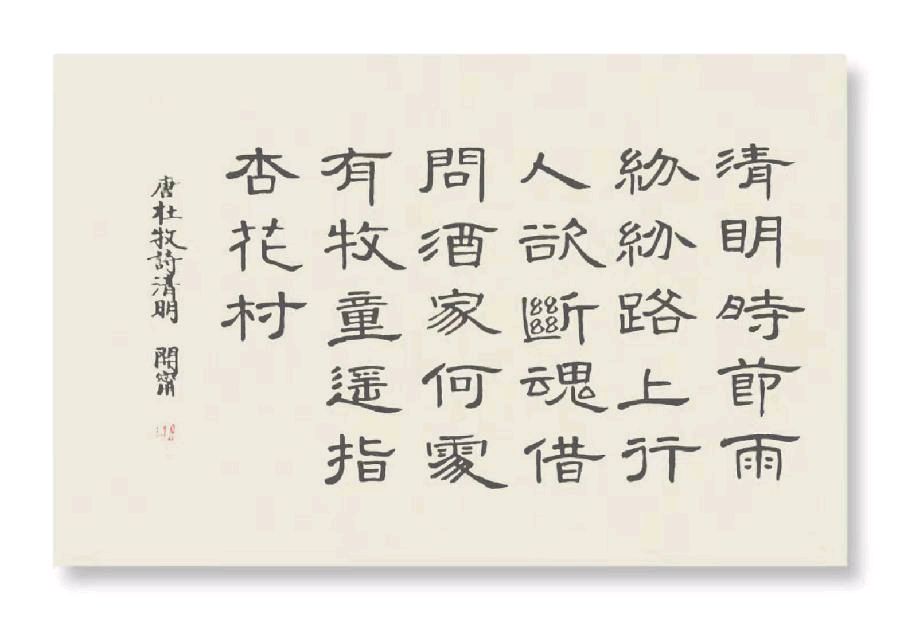 清明時節雨
紛紛路上行
人欲斷魂借
問酒家何處
有牧童遥指
杏花村
唐杜牧詩清明 開甯